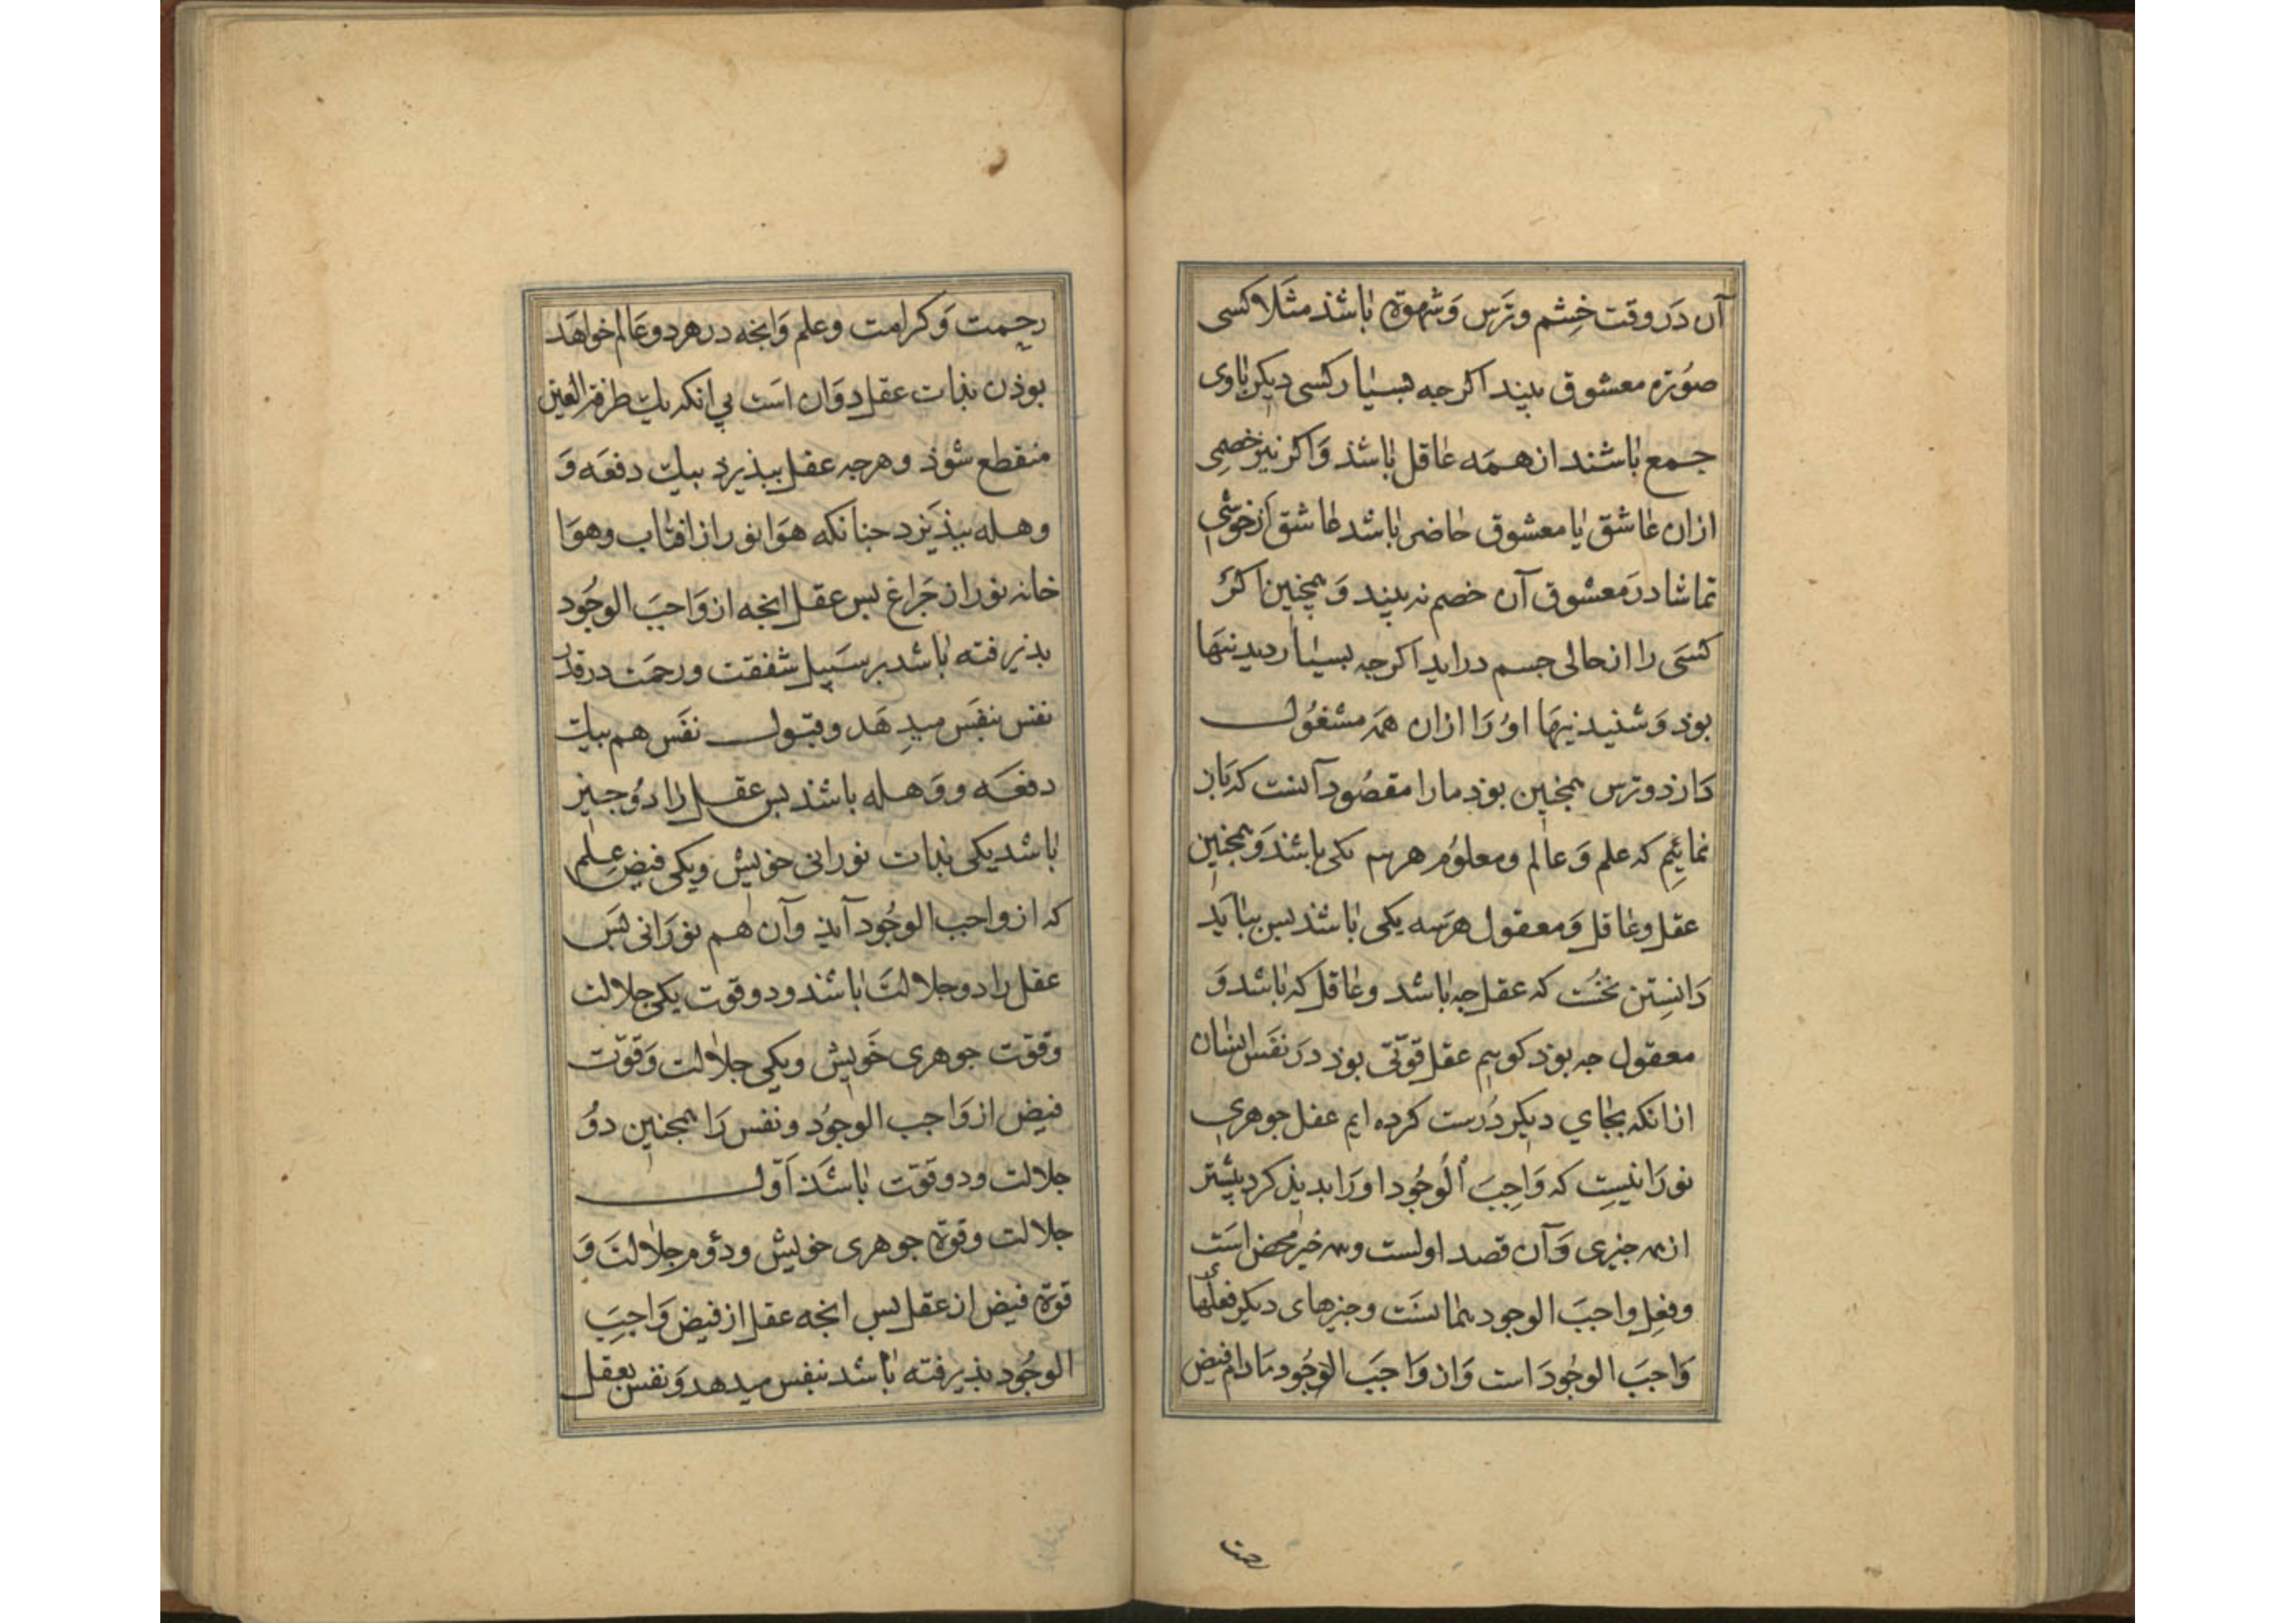 آن دَر وقت خِشم و ترَس وَ شهوة باشذ مثَلا کسی
صوُرَة معشوق بیند اکرجه بسیار کسی دیکر باوی
جمع باشند ان همَه غافل باشذ وَ اکر نیز خصمِی
ازان عاشق یا معشوق حاضر باشد عاشق اَز خوشی
تماشا درَ معشوق آن خصم نه بیند وَ همچنین اکرَ
کسَی را از حالی جسم دراید اکرجه بسیار دیدنیهَا
بوذ وَ شنیدنیهَا اوُ رَا ازان همَه مشغوُل
دَارَذ و ترس همجنین بوذ ما را مقصُود آنست که بَاز
نمائیِم که علم وَ عالم و معلوُم هر سه یکی باشذ وَ همجنین
عقل و عاقل وَ معقول هرَ سه یکی باشذ بس ببایَد
دَانِستِن نخسُت که عقل جه باشد و عاقل که باشد وَ
معقول جه بوذ کوییم عقل قوّتی بوذ درَ نفَس انسان
ازانکه بجاي دیکر دُرست کرده ایم عقل جوهری
نورَانیسِت که وَاجِبَ اْلوُجُود او رَا بدیذ کرد بیشتر
از همه جیزی وَ آن قصد اولست و همه خیر محض اسَت
و فعِل واجبَ الوجود همانسَت و جیزهای دیکر فعلهَای
وَاجبَ الوجُودَ است وَ از وَاجبَ الوُجُود مَادام فیض
رحمت
رحمت وَ کرامت و علم وَ انجه در هر دو عَالم خواهَد
بوذن بذات عقل دوَان اسَت بی انکه یك طرفة العین
منقطع شوذ و هرجه عقل ببذیرذ بیك دفعَه وَ
وهله ببذیَرد جنانکه هوَا نور از افتاب و هوَا
خانه نور از جَراغ بس عقل انجه از وَاجبَ الوجُود
بذیرفته باشد بر سَبیل شفقت و رحمَت در قدر
نفس بنفَس میدِهَد و قبول نفَس هم بیك
دفعَه و وَهله باشذ بس عقل را دوُ جیز
باشد یکی بذات نورانی خویش و یکی فیض عِلم
که از واجب الوجُود آیذ وآن هم نورَانی بسَ
عقل را دو جلالتَ باشذ و دو قوت یکی جلالت
و قوّت جوهری خَویش و یکی جلالت وَ قوّت
فیض از وَاجب الوجوُد و نفس رَا همجنین دوُ
جلالت و دو قوّت باشَذ اَوّل
جلالت و قوّة جوهری خویش و دوُم جلالتَ وَ
قوّة فیض از عقل بس انجه عقل از فیض وَاجبَ
الوجُود بذیرفته باشد بنفس میدهد وَ نفس بعقل